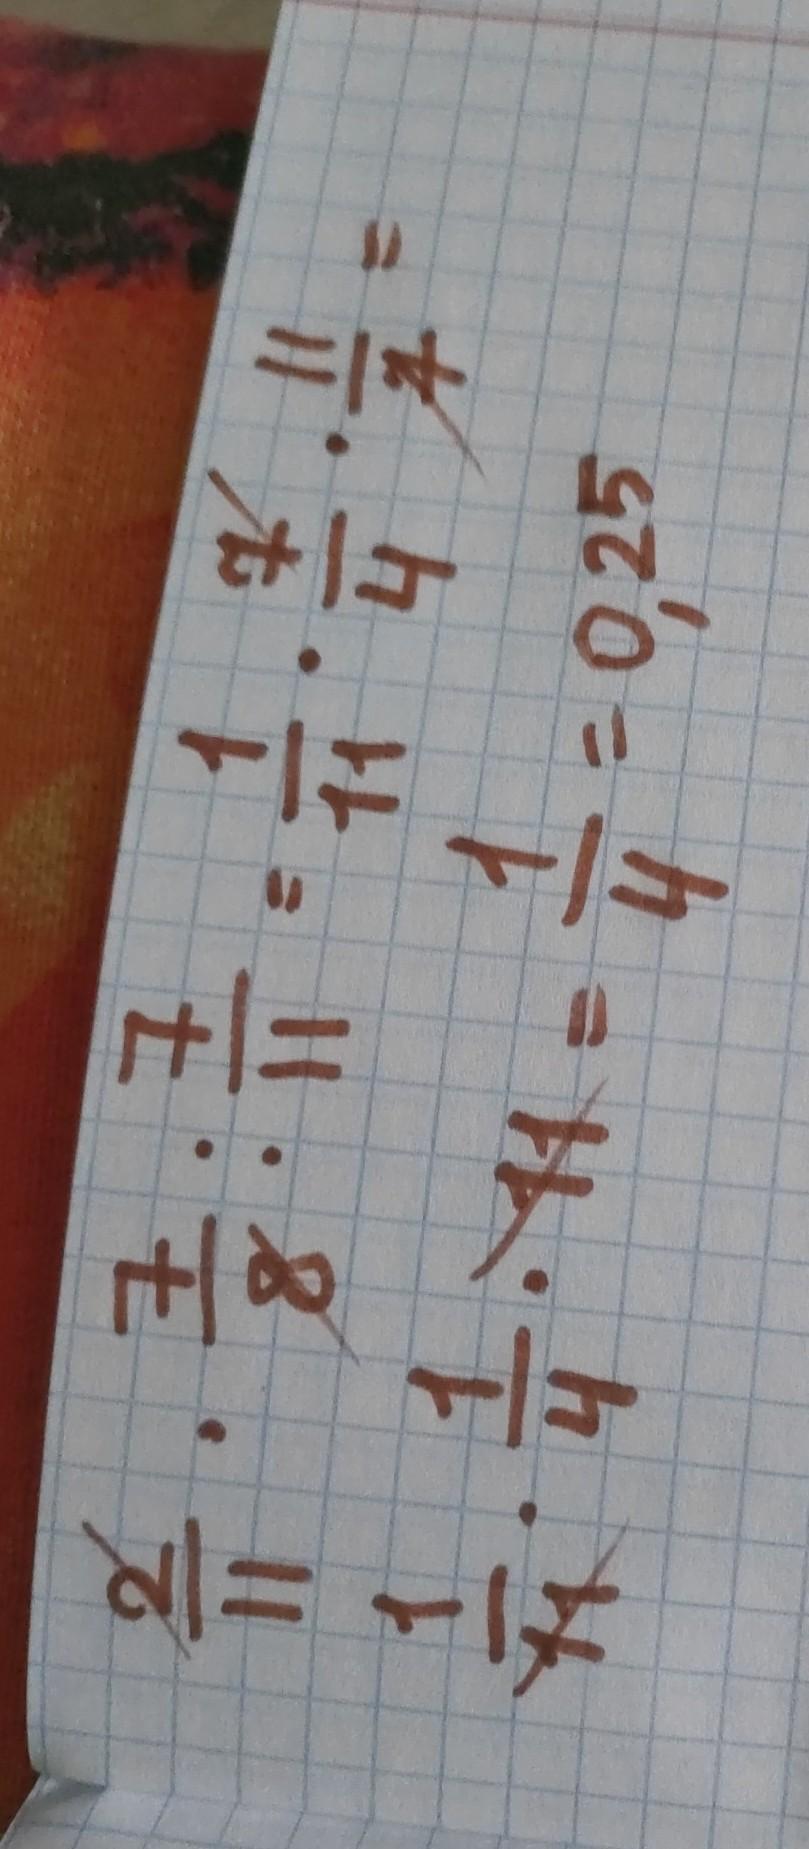 2/11 · 7/8 : 7/11 = 1/11 · 7/4 · 11/7 =
1/11 · 1/4 · 11 = 1/4 = 0,25